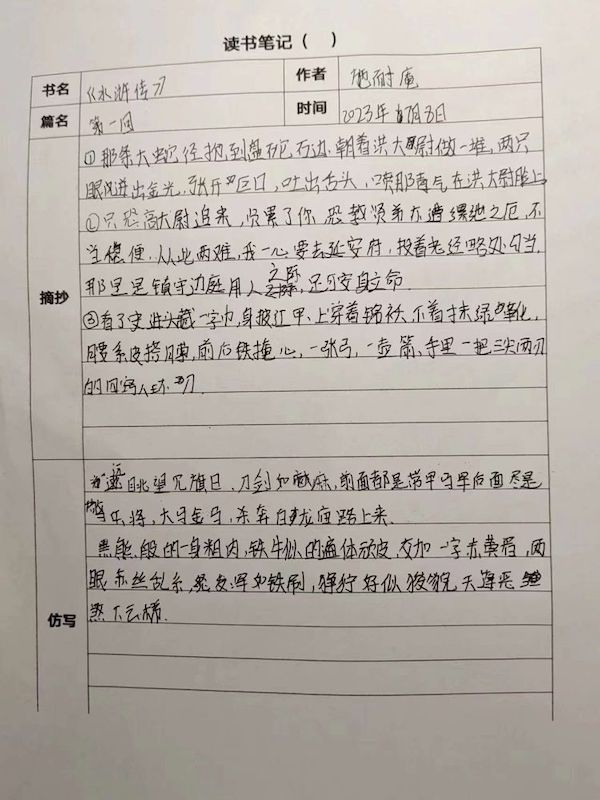 读书笔记（ ）
书名 《水浒传》 作者 施耐庵
篇名 第一回 时间 2023年 月3日
①那条大蛇 径抢到盘砣石边 朝着洪大尉做一堆,两只
眼 迸出金光,张开巨口,吐出舌头, 喷那毒气在洪大尉脸上
②只恐高大尉追来,负累了你,恐教贤弟亦遭缧绁之厄,不
当稳便,从此两难,我一心要去延安府,投着老经略处勾当,
那里是镇守边庭用人之际,还可安身立命.
摘抄
③看了史进头戴一字巾,身披红甲、上穿青锦袄、下着抹绿 靴,
腰系皮搭膊,前后铁掩心,一张弓,一壶箭,手里一把三尖两刃
的四窍八环刀
远 眺望 旗日,刀剑如 麻,前面都是带甲马军后面尽是
兵将,大马金马,杀奔白龙庙路上来.
黑熊般的一身粗肉,铁牛似的遍体顽皮,交加一字赤黄眉,两
眼赤丝乱系,怒发浑如铁刷,狰狞好似狻猊,天蓬恶
煞下云梯.
仿写